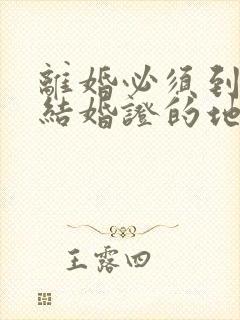 離婚必須到
結婚證的地
王露四